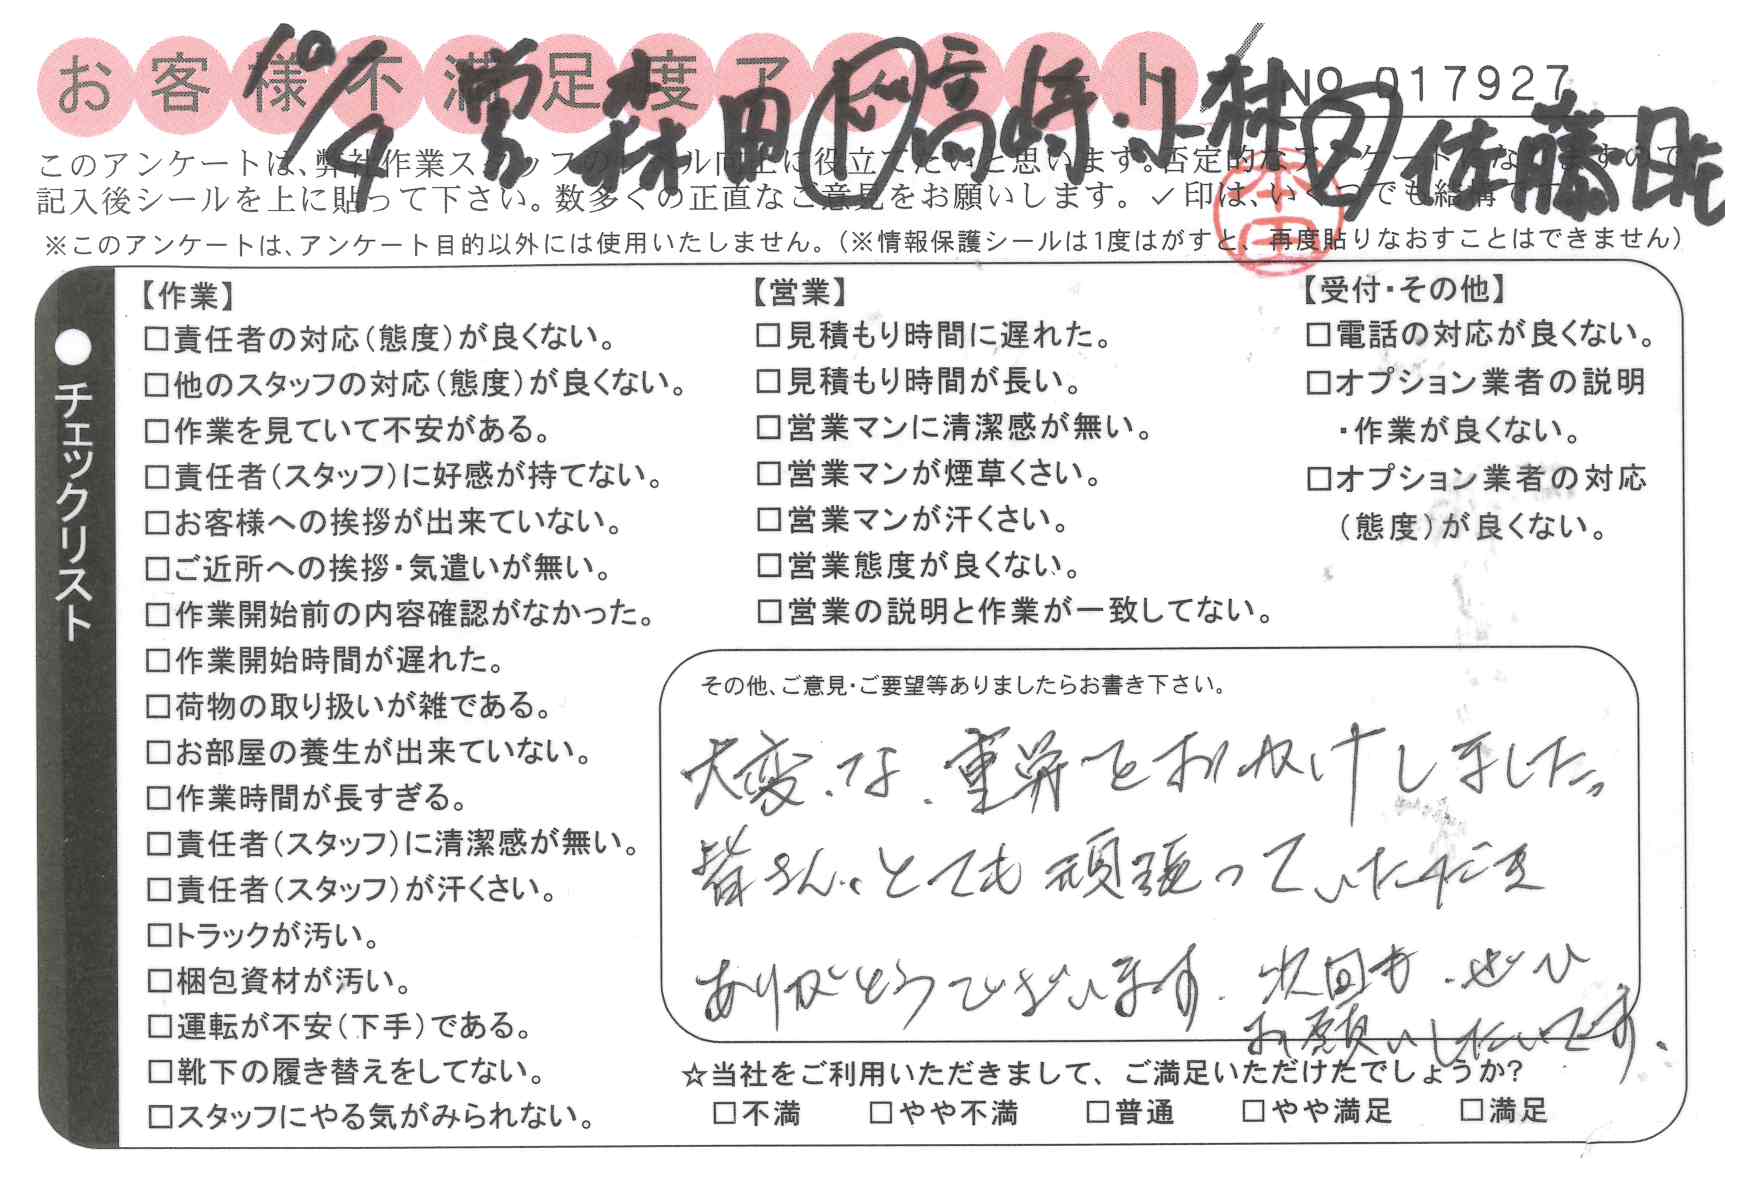 お客様不満足度アンケート
No 017927
10/4 営 森田 高崎 小林 佐藤
このアンケートは、弊社作業スタッフのレベル向上に役立てたいと思います。否定的なアンケートになりますので
記入後シールを上に貼って下さい。数多くの正直なご意見をお願いします。✓印は、いくつでも結構です。
※このアンケートは、アンケート目的以外には使用いたしません。(※情報保護シールは1度はがすと、再度貼りなおすことはできません)
本田
●チェックリスト
【作業】
□責任者の対応(態度)が良くない。
□他のスタッフの対応(態度)が良くない。
□作業を見ていて不安がある。
□責任者(スタッフ)に好感が持てない。
□お客様への挨拶が出来ていない。
□ご近所への挨拶・気遣いが無い。
□作業開始前の内容確認がなかった。
□作業開始時間が遅れた。
□荷物の取り扱いが雑である。
□お部屋の養生が出来ていない。
□作業時間が長すぎる。
□責任者(スタッフ)に清潔感が無い。
□責任者(スタッフ)が汗くさい。
□トラックが汚い。
□梱包資材が汚い。
□運転が不安(下手)である。
□靴下の履き替えをしてない。
□スタッフにやる気がみられない。
【営業】
□見積もり時間に遅れた。
□見積もり時間が長い。
□営業マンに清潔感が無い。
□営業マンが煙草くさい。
□営業マンが汗くさい。
□営業態度が良くない。
□営業の説明と作業が一致してない。
【受付・その他】
□電話の対応が良くない。
□オプション業者の説明
・作業が良くない。
□オプション業者の対応
(態度)が良くない。
その他、ご意見・ご要望等ありましたらお書き下さい。
大変な、重労をおかけしました。
皆さん、とても頑張っていただき
ありがとうございます。次回も、ぜひ
お願いしたいです。
☆当社をご利用いただきまして、ご満足いただけたでしょうか?
□不満 □やや不満 □普通 □やや満足 □満足